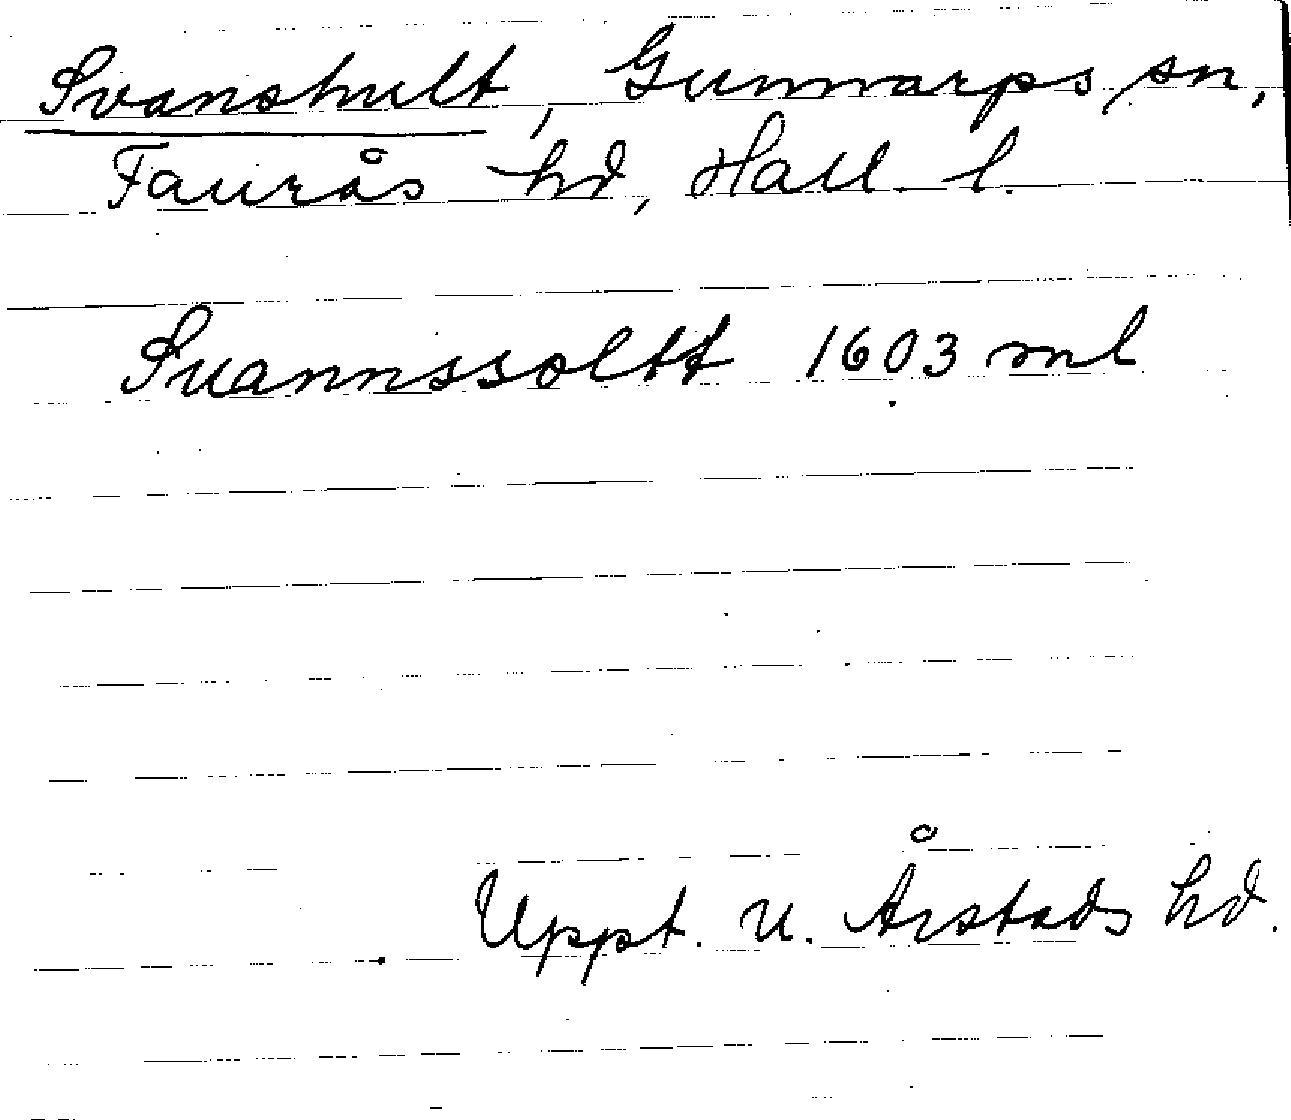 Svanshult, Gunnarps sn,
Faurås hd, Hall. l.
Suannssoltt 1603 ml
Uppt. u. Årstads hd.